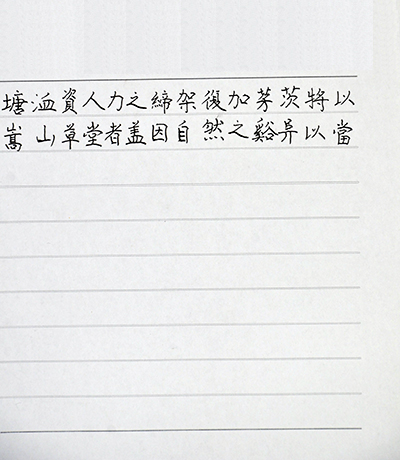 塘洫資人力之締架復加茅茨將以
嵩山草堂者盖因自然之谿异以當